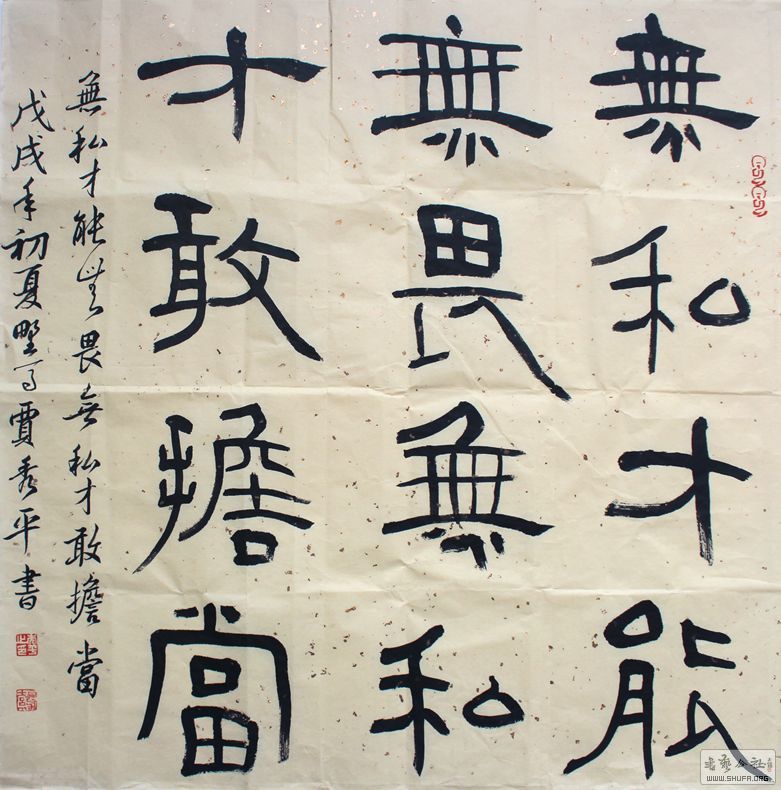 無私才能
無畏無私
才敢擔當
無私才能無畏無私才敢擔當
戊戌年初夏野馬賈秀平書
书艺公社
WWW.SHUFA.COM